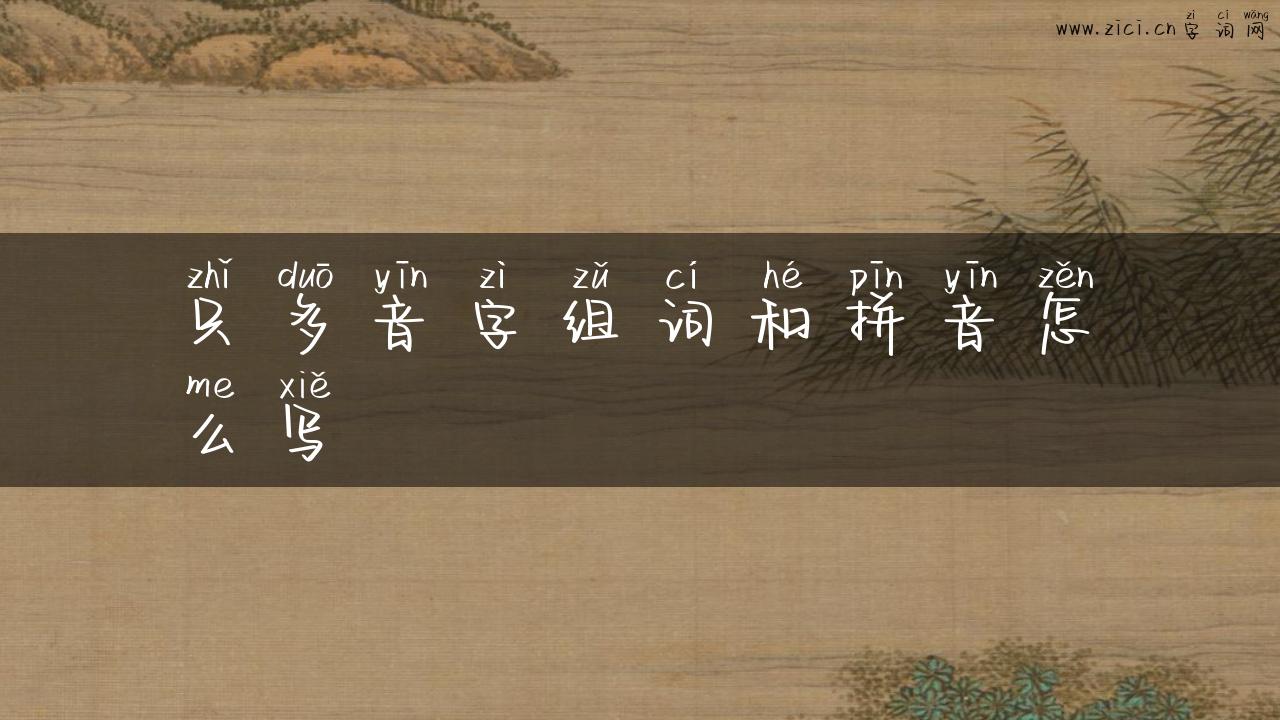 zì cí wǎng
www.zici.cn 字词网
zhǐ duō yīn zì zǔ cí hé pīn yīn zěn
只多音字组词和拼音怎
me xiě
么写